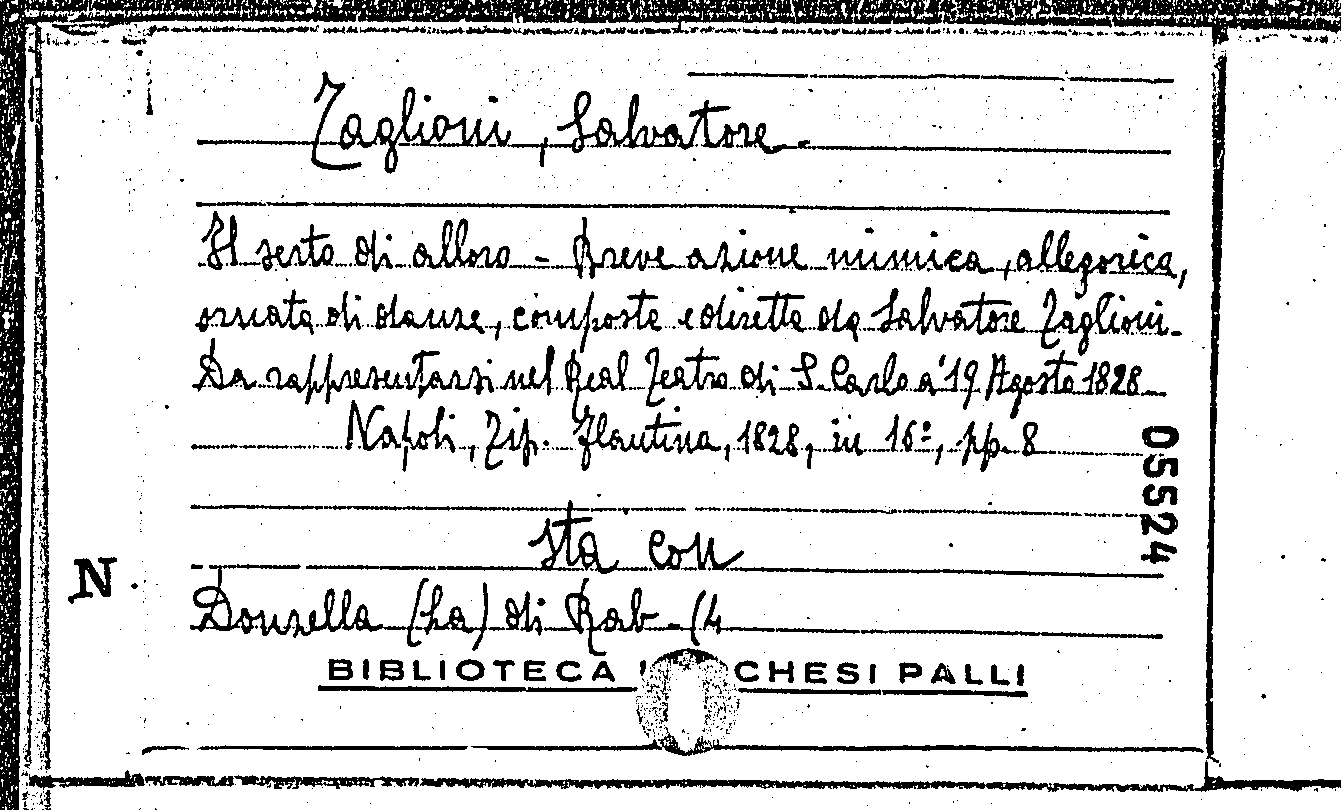 Taglioni, Salvatore.
Il serto di alloro - Breve azione mimica, allegorica,
ornata di danze, composta e diretta da Salvatore Taglioni.
Da rappresentarsi nel Real Teatro di S. Carlo a' 19 Agosto 1828
Napoli, Tip. Flautina, 1828, in 16º, pp. 8
05524
sta con
N.
Donzella (La) di Rab - (4
BIBLIOTECA CHESI PALLI